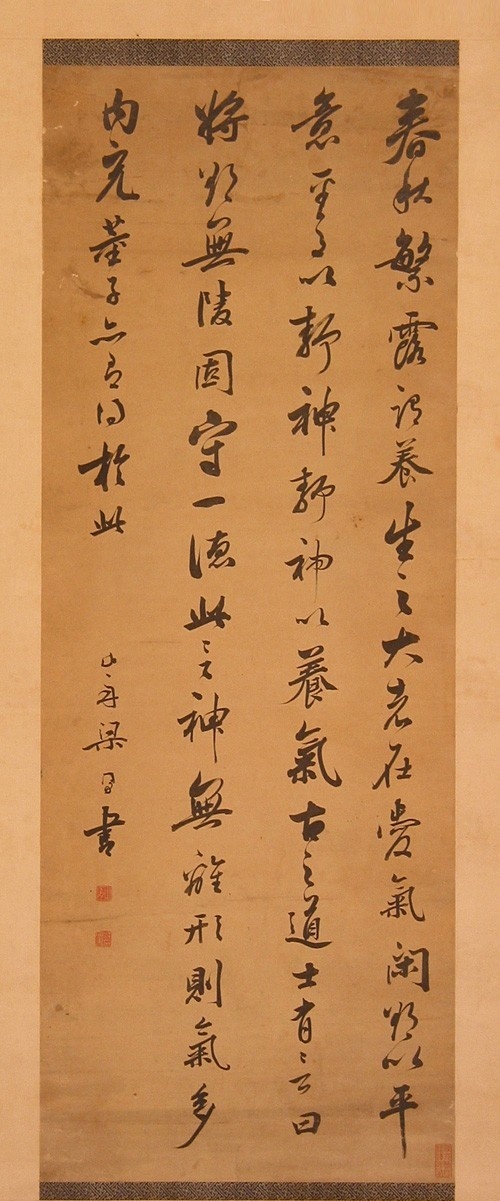 春秋繁露養生之大者在愛氣閑欲以平
意平以靜神靜神以養氣古之道士有言曰
將欲無陵固守一德此言神無離形則氣多
內充董子亦有得於此
山舟梁同書